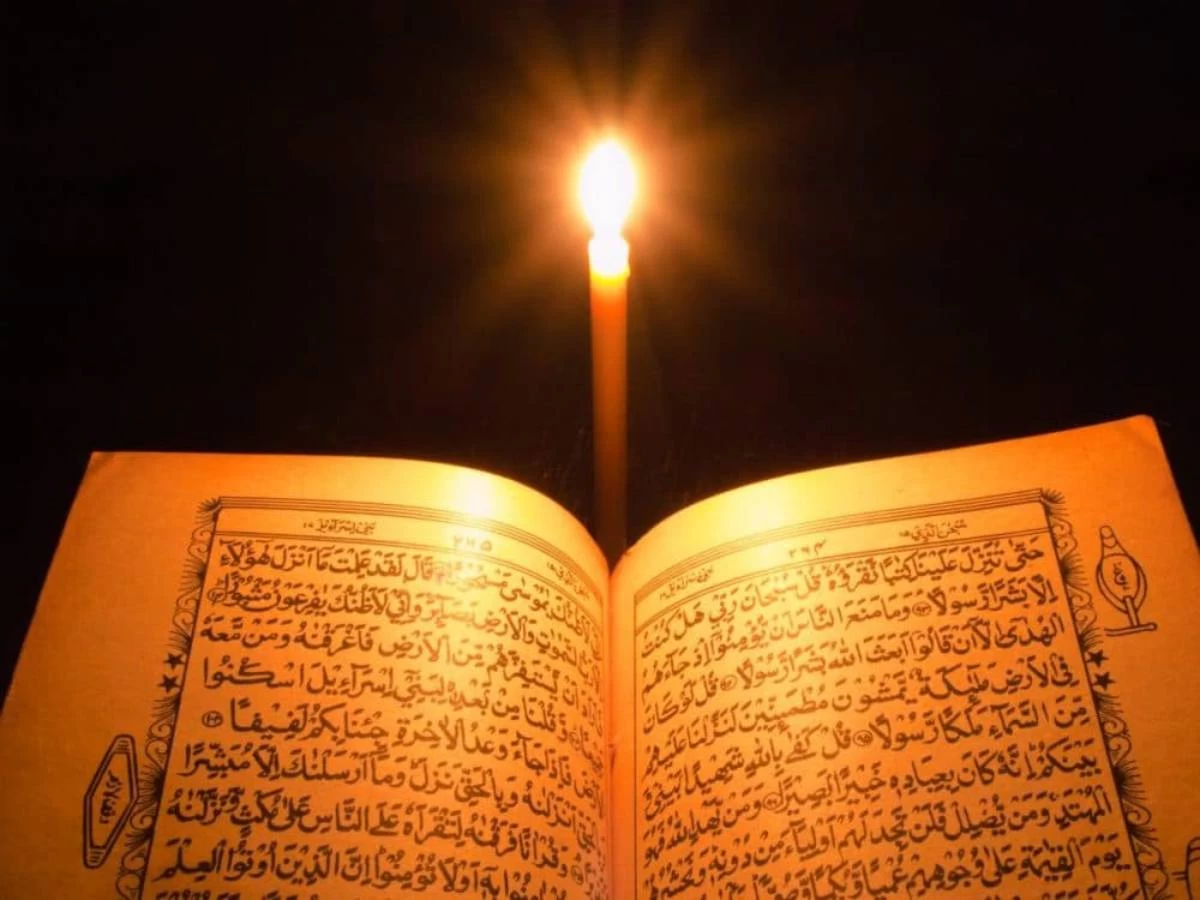 سُبْحٰنَ الَّذِيْ ١٥
٢٦٤
بَنِيْ اِسْرَآءِيْلَ ١٧
حَتّٰى تُنَزِّلَ عَلَيْنَا كِتٰبًا نَّقْرَؤُهٗ قُلْ سُبْحَانَ رَبِّيْ هَلْ كُنْتُ
اِلَّا بَشَرًا رَّسُوْلًا ۹۳ وَمَا مَنَعَ النَّاسَ اَنْ يُّؤْمِنُوْٓا اِذْ جَآءَهُمُ
الْهُدٰٓى اِلَّآ اَنْ قَالُوْٓا اَبَعَثَ اللّٰهُ بَشَرًا رَّسُوْلًا ۹۴ قُلْ لَّوْ كَانَ
فِي الْاَرْضِ مَلٰٓئِكَةٌ يَّمْشُوْنَ مُطْمَئِنِّيْنَ لَنَزَّلْنَا عَلَيْهِمْ
مِّنَ السَّمَآءِ مَلَكًا رَّسُوْلًا ۹۵ قُلْ كَفٰى بِاللّٰهِ شَهِيْدًا بَيْنِيْ وَ
بَيْنَكُمْ اِنَّهٗ كَانَ بِعِبَادِهٖ خَبِيْرًا بَصِيْرًا ۹۶ وَمَنْ يَّهْدِ اللّٰهُ فَهُوَ
الْمُهْتَدِ وَمَنْ يُّضْلِلْ فَلَنْ تَجِدَ لَهُمْ اَوْلِيَآءَ مِنْ دُوْنِهٖ وَنَحْشُرُهُمْ
يَوْمَ الْقِيٰمَةِ عَلٰى وُجُوْهِهِمْ عُمْيًا وَّبُكْمًا وَّصُمًّا
سُبْحٰنَ الَّذِيْ ١٥
٢٦٥
بَنِيْ اِسْرَآءِيْلَ ١٧
لَاَظُنُّكَ يٰمُوْسٰى مَسْحُوْرًا قَالَ لَقَدْ عَلِمْتَ مَآ اَنْزَلَ هٰٓؤُلَآءِ
السَّمٰوٰتِ وَالْاَرْضِ بَصَآئِرَ وَاِنِّيْ لَاَظُنُّكَ يٰفِرْعَوْنُ مَثْبُوْرًا ۱۰۲
اَنْ يَّسْتَفِزَّهُمْ مِّنَ الْاَرْضِ فَاَغْرَقْنٰهُ وَمَنْ مَّعَهٗ
وَّقُلْنَا مِنْ بَعْدِهٖ لِبَنِيْٓ اِسْرَآءِيْلَ اسْكُنُوا
فَاِذَا جَآءَ وَعْدُ الْاٰخِرَةِ جِئْنَا بِكُمْ لَفِيْفًا ۱۰۴
اَنْزَلْنٰهُ وَبِالْحَقِّ نَزَلَ وَمَآ اَرْسَلْنٰكَ اِلَّا مُبَشِّرًا
وَقُرْاٰنًا فَرَقْنٰهُ لِتَقْرَاَهٗ عَلَى النَّاسِ عَلٰى مُكْثٍ وَّنَزَّلْنٰهُ
اٰمِنُوْا بِهٖٓ اَوْ لَا تُؤْمِنُوْا اِنَّ الَّذِيْنَ اُوْتُوا الْعِلْمَ